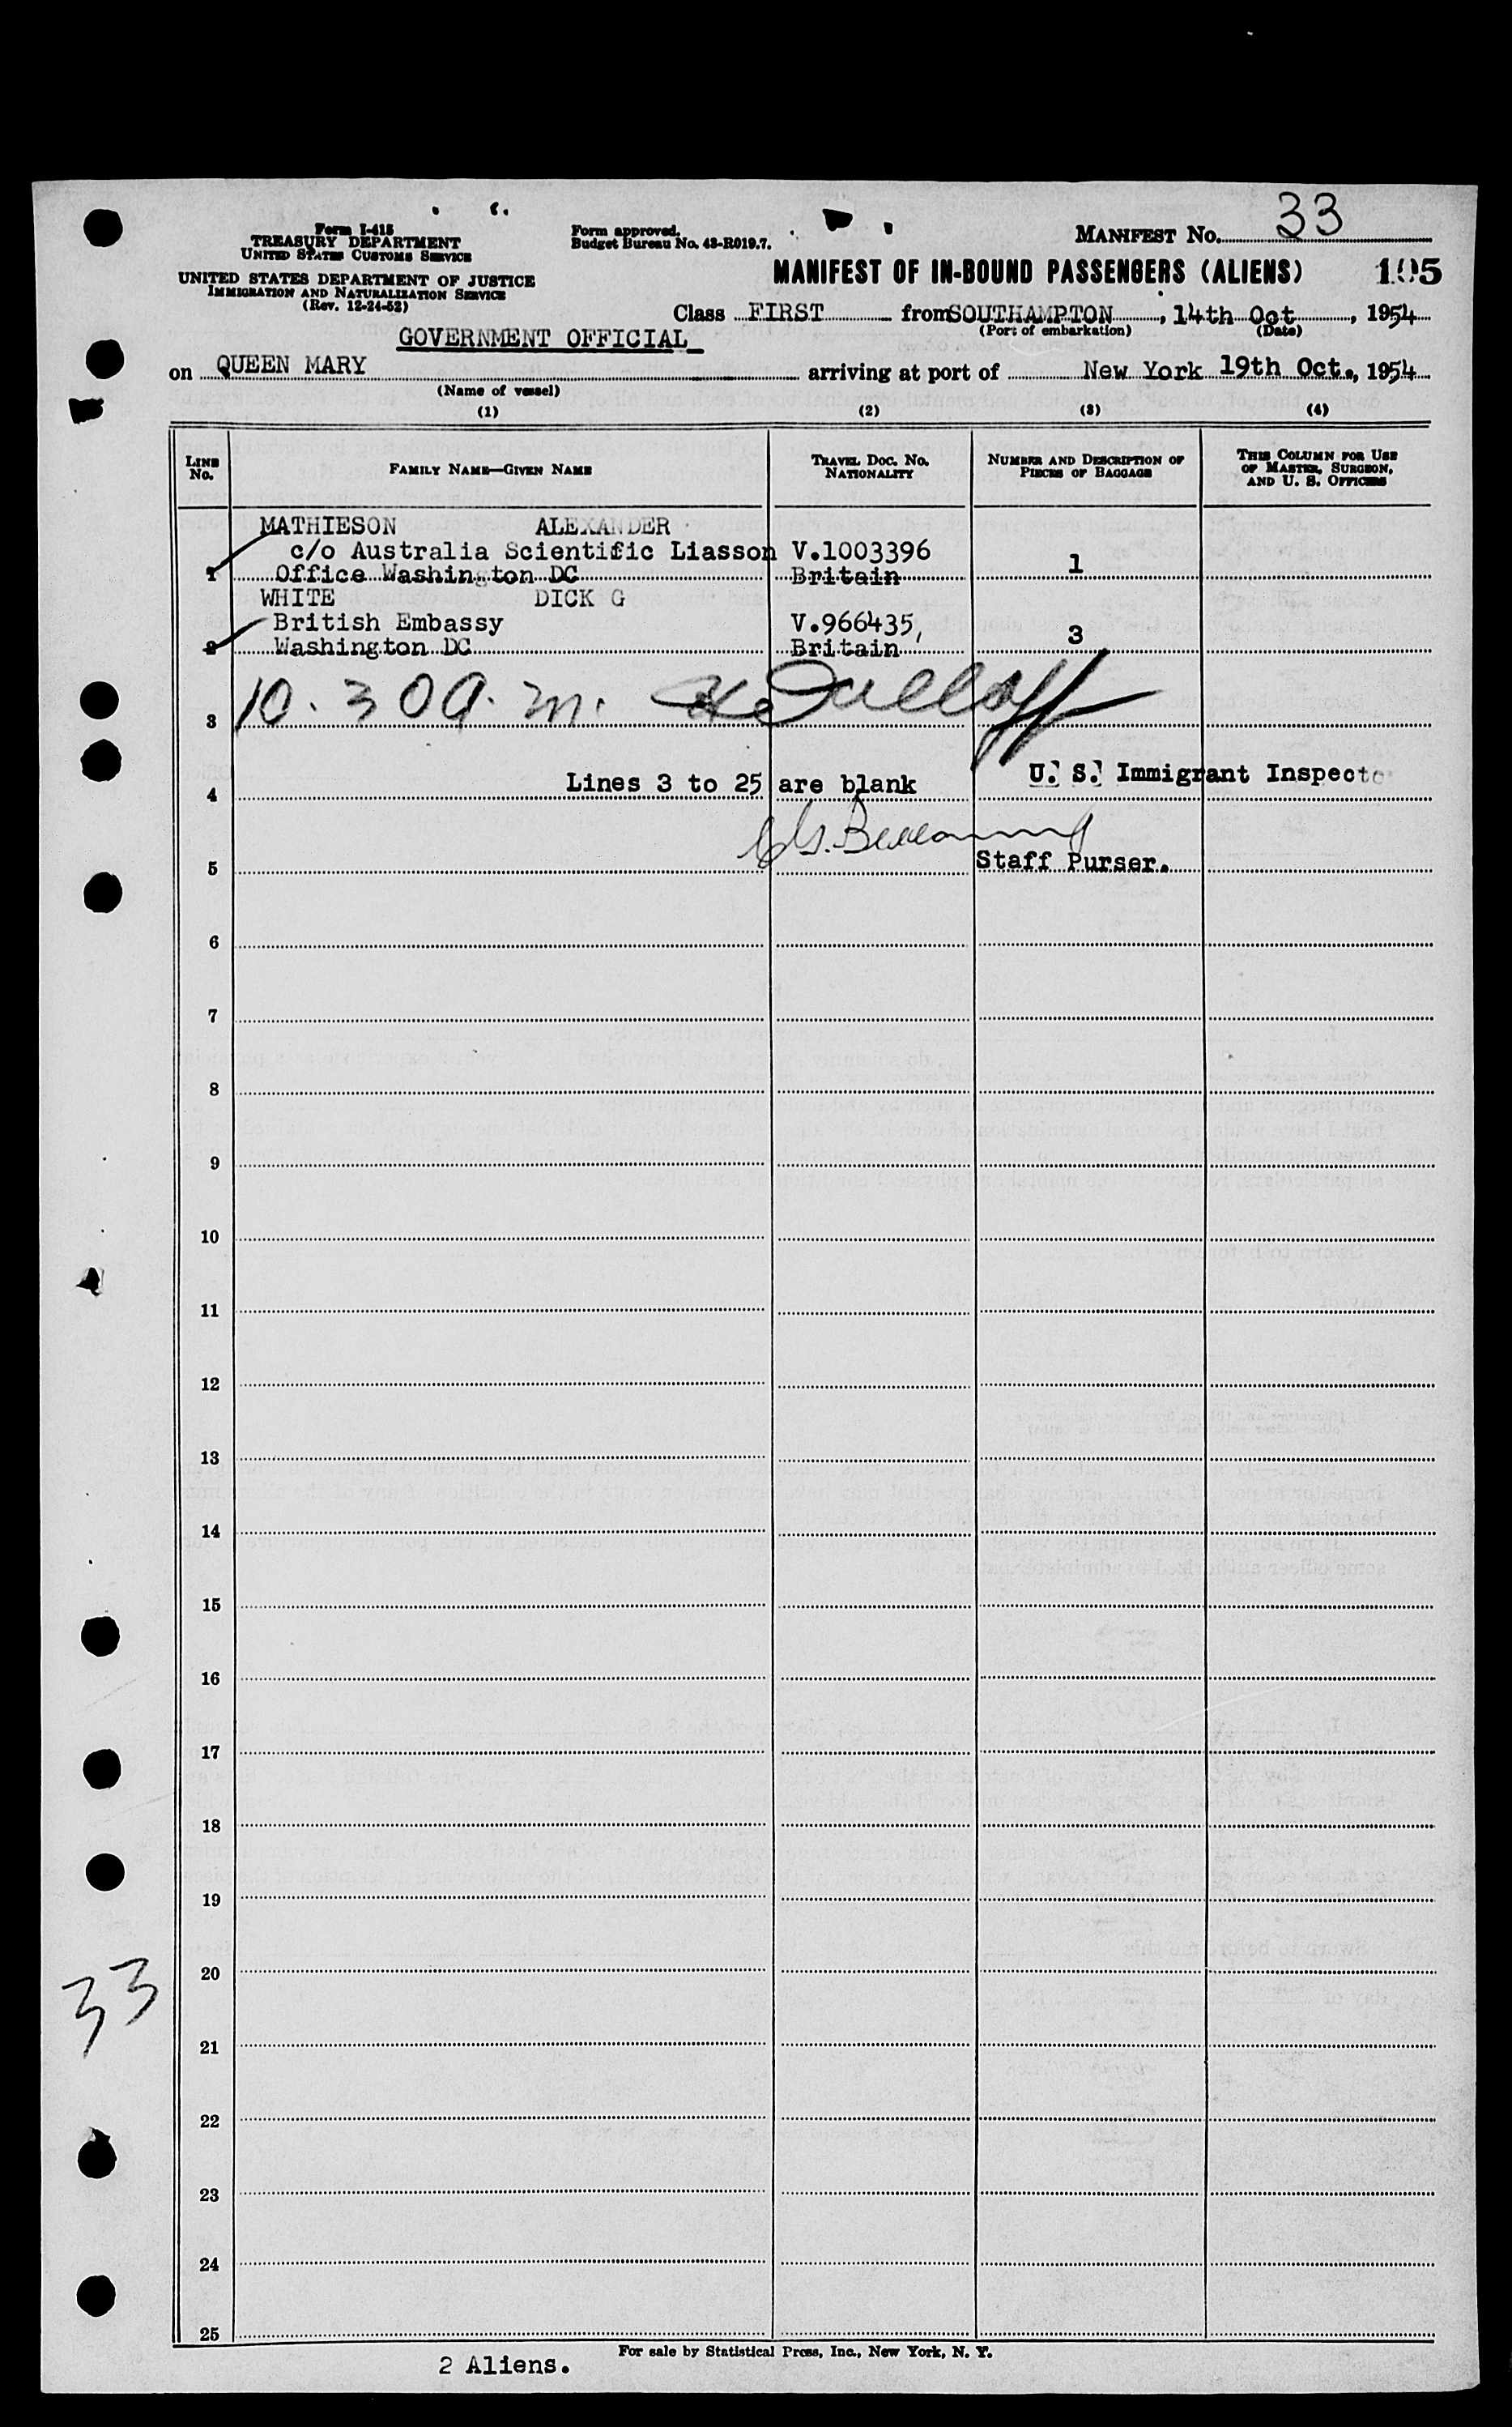 Form I-415
TREASURY DEPARTMENT
UNITED STATES CUSTOMS SERVICE
UNITED STATES DEPARTMENT OF JUSTICE
IMMIGRATION AND NATURALIZATION SERVICE
(Rev. 12-24-52)
Form approved.
Budget Bureau No. 43-R019.7.
MANIFEST No. 33
MANIFEST OF IN-BOUND PASSENGERS (ALIENS) 195
Class FIRST from SOUTHAMPTON, 14th Oct, 1954
(Port of embarkation) (Date)
GOVERNMENT OFFICIAL
on QUEEN MARY arriving at port of New York 19th Oct., 1954
(Name of vessel)
(1) (2) (3) (4)
LINE No. FAMILY NAME—GIVEN NAME TRAVEL DOC. NO. NATIONALITY NUMBER AND DESCRIPTION OF PIECES OF BAGGAGE THIS COLUMN FOR USE OF MASTER, SURGEON, AND U. S. OFFICERS
MATHIESON ALEXANDER
c/o Australia Scientific Liasson V.1003396
1 Office Washington DC Britain 1
WHITE DICK G
British Embassy V.966435,
2 Washington DC Britain 3
3 10.30 a.m.
U. S. Immigrant Inspecto
4 Lines 3 to 25 are blank
5 Staff Purser.
6
7
8
9
10
11
12
13
14
15
16
17
18
19
20
33
21
22
23
24
25
For sale by Statistical Press, Inc., New York, N. Y.
2 Aliens.